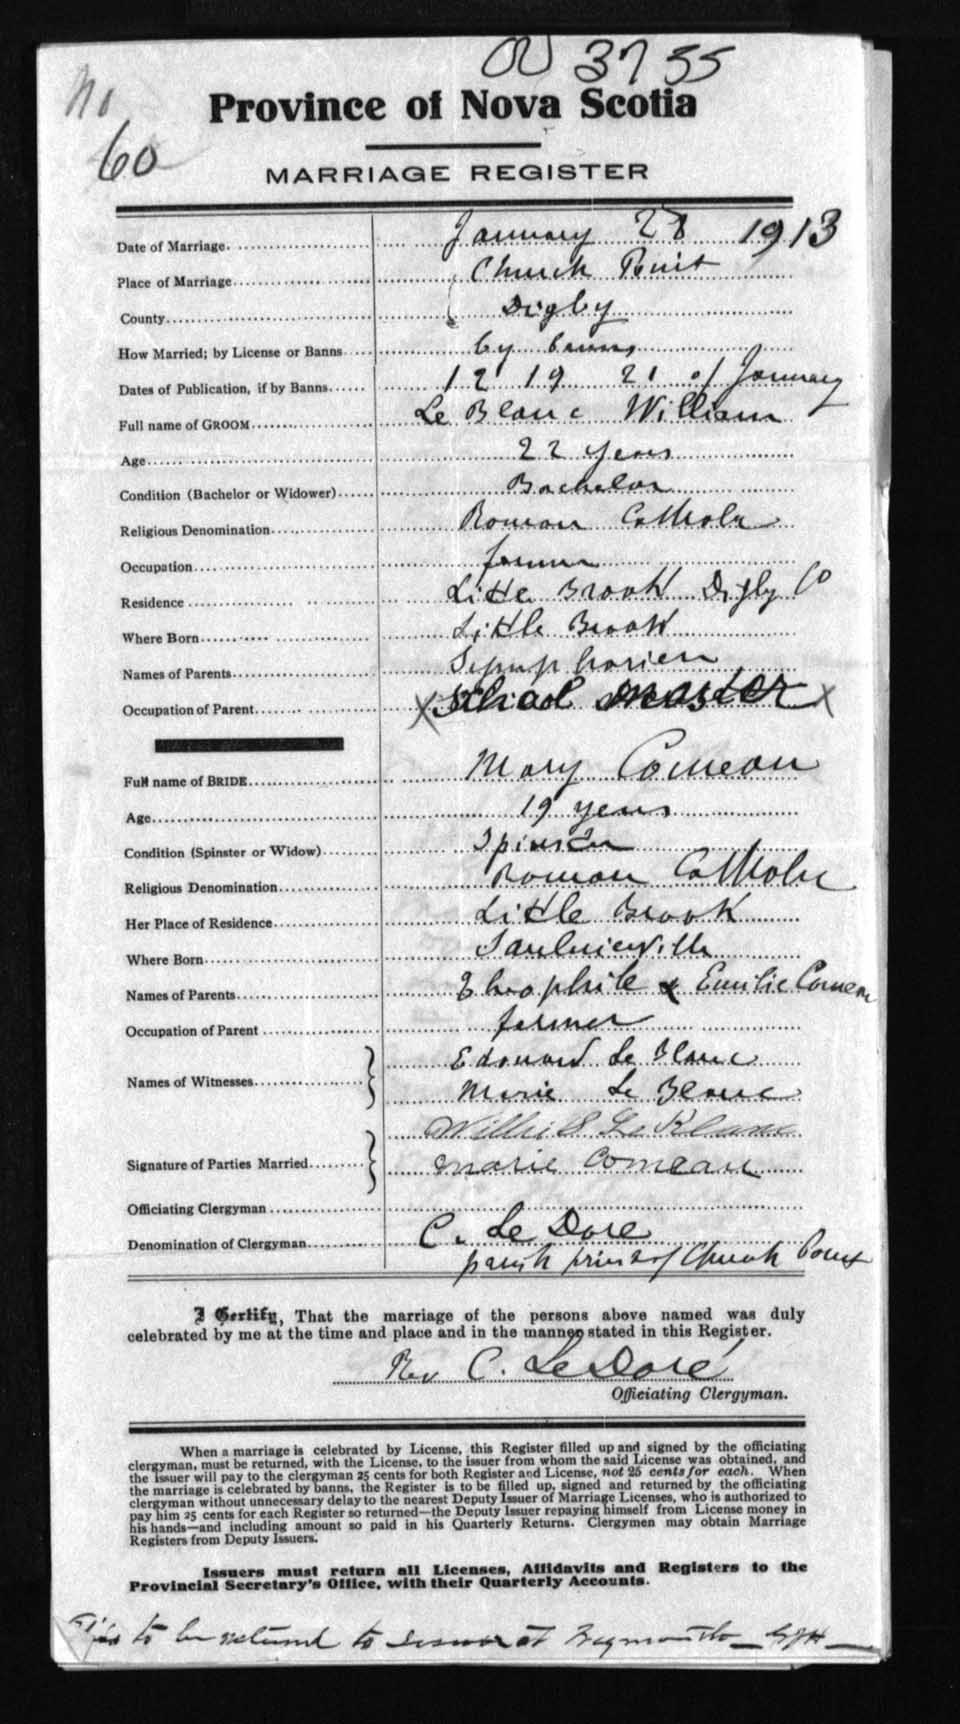 3755
No
60
Province of Nova Scotia
MARRIAGE REGISTER
Date of Marriage. January 28 1913
Place of Marriage Church Point
County Digby
How Married; by License or Banns by banns
Dates of Publication, if by Banns 12 19 21 of January
Full name of GROOM Le Blanc William
Age 22 years
Condition (Bachelor or Widower) Bachelor
Religious Denomination Roman Catholic
Occupation farmer
Residence Little Brook Digby Co
Where Born Little Brook
Names of Parents Symphorien
Occupation of Parent x School master x
Full name of BRIDE Mary Comeau
Age 19 years
Condition (Spinster or Widow) Spinster
Religious Denomination Roman Catholic
Her Place of Residence Little Brook
Where Born Saulnierville
Names of Parents Theophile & Emilie Comeau
Occupation of Parent farmer
Edouard Le Blanc
Names of Witnesses
Marie Le Blanc
Willie S Le Blanc
Signature of Parties Married Marie Comeau
Officiating Clergyman
Denomination of Clergyman C. Le Dore
parish priest of Church Point
I Certify, That the marriage of the persons above named was duly
celebrated by me at the time and place and in the manner stated in this Register.
Rev C. LeDoré
Officiating Clergyman.
When a marriage is celebrated by License, this Register filled up and signed by the officiating
clergyman, must be returned, with the License, to the issuer from whom the said License was obtained, and
the issuer will pay to the clergyman 25 cents for both Register and License, not 25 cents for each. When
the marriage is celebrated by banns, the Register is to be filled up, signed and returned by the officiating
clergyman without unnecessary delay to the nearest Deputy Issuer of Marriage Licenses, who is authorized to
pay him 25 cents for each Register so returned—the Deputy Issuer repaying himself from License money in
his hands—and including amount so paid in his Quarterly Returns. Clergymen may obtain Marriage
Registers from Deputy Issuers.
Issuers must return all Licenses, Affidavits and Registers to the
Provincial Secretary's Office, with their Quarterly Accounts.
This to be returned to issuer at Weymouth